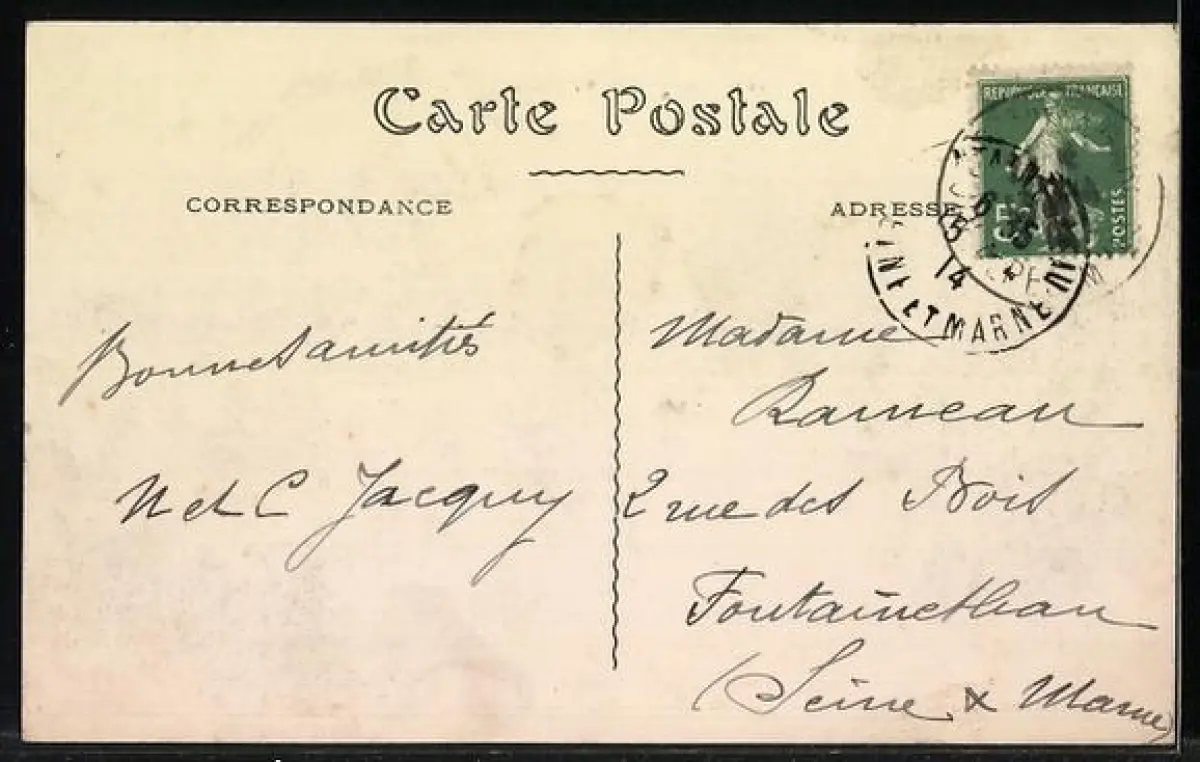 Carte Postale
CORRESPONDANCE
ADRESSE
REPUBLIQUE FRANÇAISE
POSTES
5
14
ET MARNE
Bonnes amitiés
N et C Jacquy
Madame
Rameau
2 rue des Bois
Fontainebleau
(Seine & Marne)